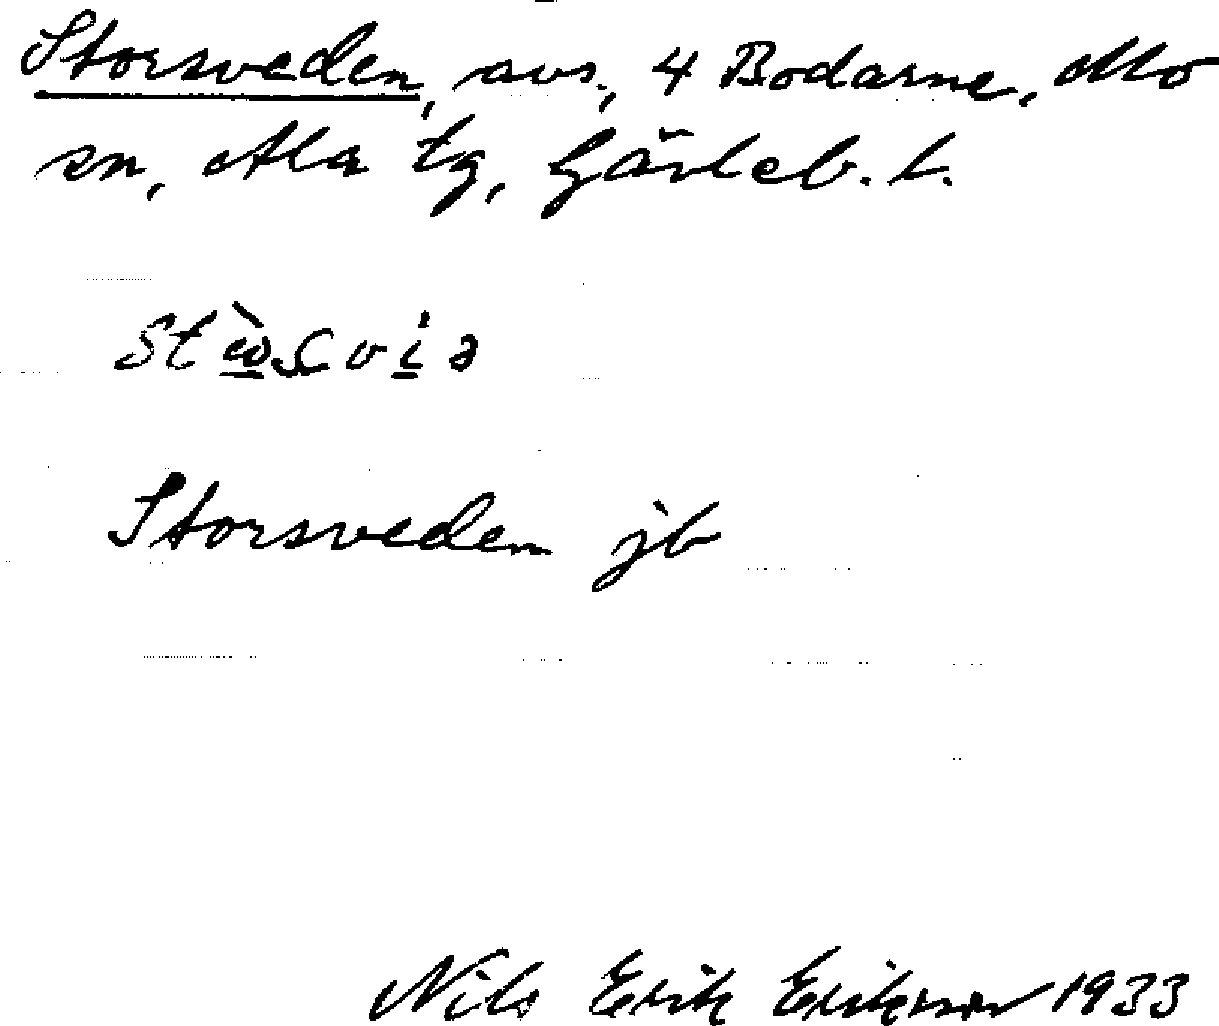 Storsveden, avs., 4 Bodarne, Mo
sn, Ala tg, Gävleb. l.
Storsveden jb
Nils Erik Eriksson 1933